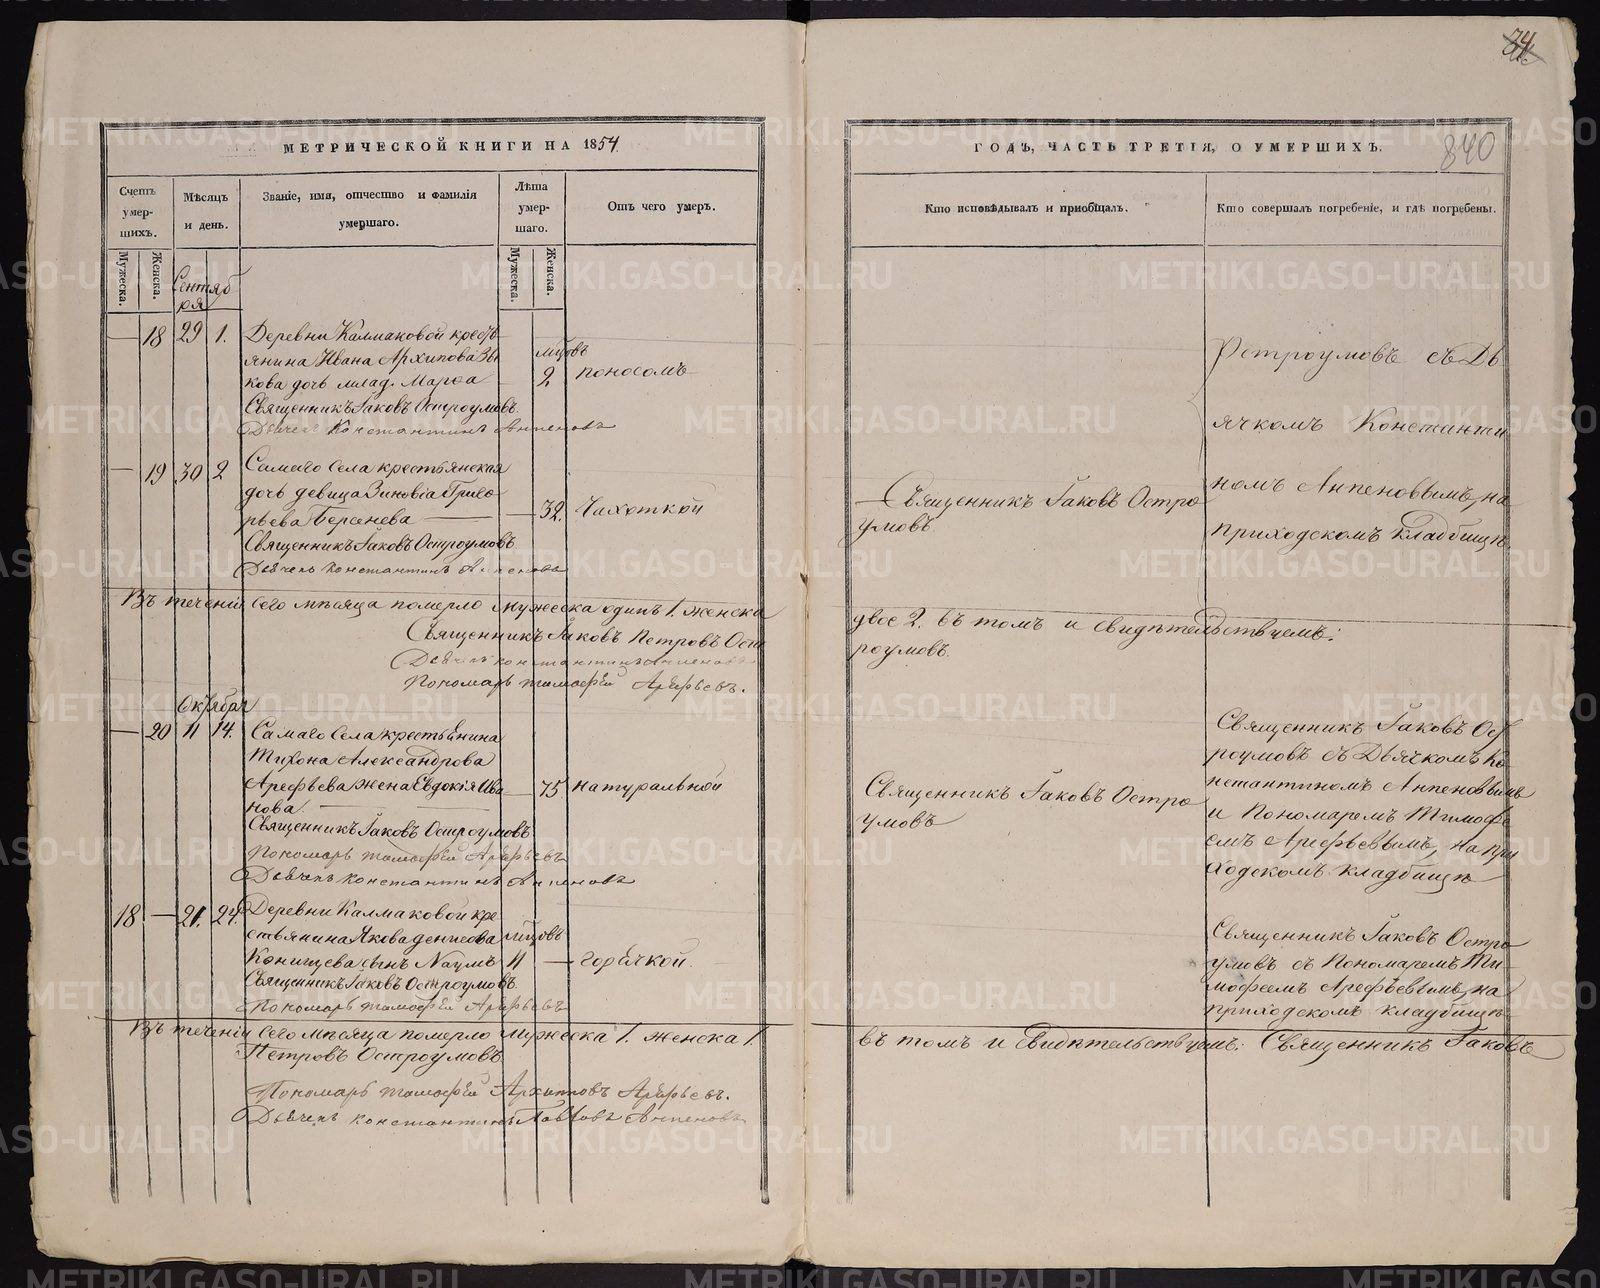 МЕТРИЧЕСКОЙ КНИГИ НА 1854
Счетъ умершихъ.
Мѣсяцъ и день.
Званіе, имя, отчество и фамилія умершаго.
Лѣта умершаго.
Отъ чего умеръ.
Мужеска.
Женска.
Мужеска.
Женска.
Сентяб
ря
18 29 1. Деревни Калмаковой кресть
янина Ивана Архипова Зы мѣсяцовъ
кова дочь млад. Марѳа 2 поносомъ
Священникъ Іаковъ Остроумовъ
Дьячекъ Константинъ Анпеновъ
19 30 2 Самаго Села крестьянская
дочь девица Зиновіа Григо
рьева Берсенева 32. Чахоткой
Священникъ Іаковъ Остроумовъ
Дьячекъ Константинъ Анпеновъ
Въ теченіи сего мѣсяца померло мужеска одинъ 1. женска
Священникъ Іаковъ Петровъ Ост
Дьячекъ Константинъ Анпеновъ
Пономарь Тимофѣй Арефьевъ.
Октября
20 11 14. Самаго Села крестьянина
Тихона Александрова
Арефьева жена Евдокія Ива 75 натуральной
нова.
Священникъ Іаковъ Остроумовъ
Пономарь Тимофѣй Арефьевъ
Дьячекъ Константинъ Анпеновъ
18 21. 24. Деревни Калмаковой кре
стьянина Якова Денисова мѣсяцовъ
Конищева сынъ Наумъ 11 горячкой.
Священникъ Іаковъ Остроумовъ
Пономарь Тимофѣй Арефьевъ
Въ теченіи сего мѣсяца померло мужеска 1. женска 1.
Петровъ Остроумовъ
Пономарь Тимофѣй Архиповъ Арефьевъ.
Дьячекъ Константинъ Павловъ Анпеновъ
840
ГОДЪ, ЧАСТЬ ТРЕТІЯ, О УМЕРШИХЪ.
Кто исповѣдывалъ и пріобщалъ.
Кто совершалъ погребеніе, и гдѣ погребены.
роумовъ съ Дь
ячкомъ Константи
номъ Анпеновымъ, на
приходскомъ кладбищѣ
Священникъ Іаковъ Остро
умовъ
двое 2. въ томъ и свидѣтельствуемъ:
роумовъ.
Священникъ Іаковъ Остро
умовъ
Священникъ Іаковъ Ост
роумовъ съ Дьячкомъ Ко
нстантиномъ Анпеновымъ
и Пономаремъ Тимофе
емъ Арефьевымъ, на при
ходскомъ кладбищѣ
Священникъ Іаковъ Остро
умовъ съ Пономаремъ Ти
мофеемъ Арефьевымъ, на
приходскомъ кладбищѣ
въ томъ и свидѣтельствуемъ: Священникъ Іаковъ
METRIKI.GASO-URAL.RU